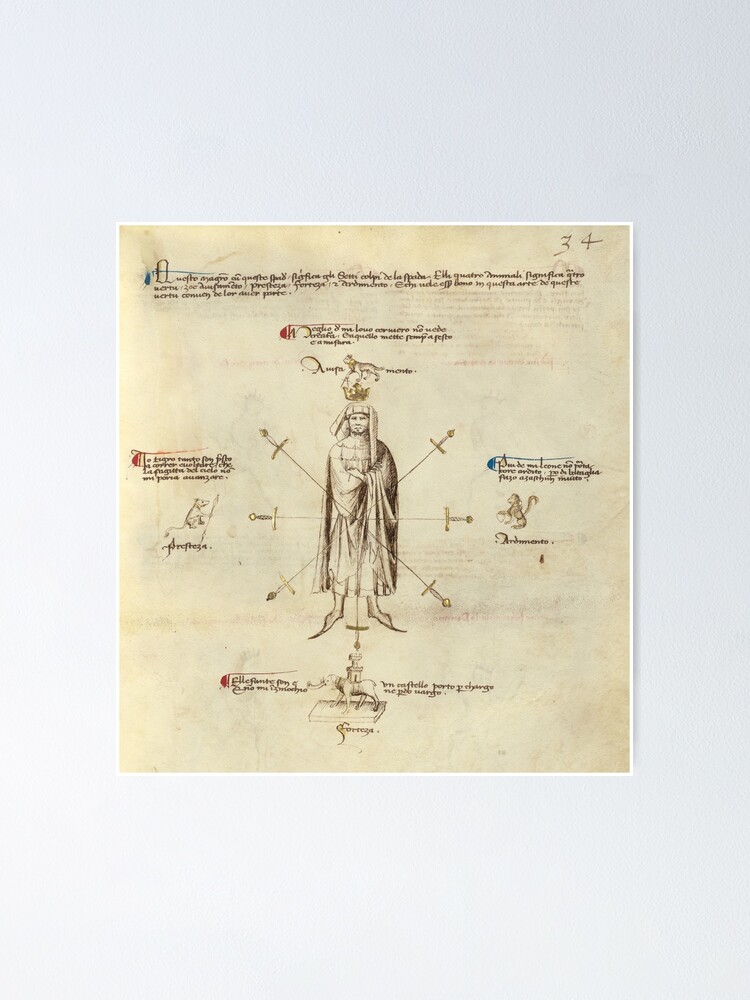 34
Questo Magistro cũ queste spade significa gli Setti colpi de la spada. Elli quatro Animali significa q̃tro
vertu, zoe avisamẽto, presteza, forteza, & Ardimento. E chi vole ess̃ bono in questa arte de queste
vertu conven de lor aver parte.
Meglio d̃ mi lovo cerviero nõ vede
creatura. E aquello mette semp̃ a sesto
e a misura.
Avisa mento.
Io tigro tanto son p̃sto
a correr e voltare che
la sagitta del cielo nõ
mi poria avanzare.
Presteza.
Piu de mi leone nõ porta
core ardito, po di bataglia
fazo a zaschũ invito.
Ardimento.
Ellefante son e un castello porto p chargo
E no mi inzinochio ne pdo vargo.
Forteza.